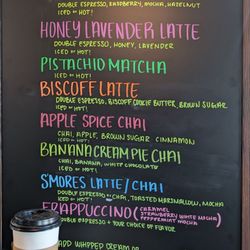 DOUBLE ESPRESSO, RASPBERRY, MOCHA, HAZELNUT
ICED OR HOT!
HONEY LAVENDER LATTE
DOUBLE ESPRESSO, HONEY, LAVENDER
ICED OR HOT!
PISTACHIO MATCHA
ICED OR HOT!
BISCOFF LATTE
DOUBLE ESPRESSO, BISCOFF COOKIE BUTTER, BROWN SUGAR
ICED OR HOT!
APPLE SPICE CHAI
CHAI, APPLE, BROWN SUGAR CINNAMON
ICED OR HOT!
BANANA CREAM PIE CHAI
CHAI, BANANA, WHITE CHOCOLATE
ICED OR HOT!
S'MORES LATTE/CHAI
DOUBLE ESPRESSO OR CHAI, TOASTED MARSHMALLOW, MOCHA
ICED OR HOT!
FRAPPUCCINO (CARAMEL
STRAWBERRY WHITE MOCHA
PEPPERMINT MOCHA)
DOUBLE ESPRESSO + YOUR CHOICE OF FLAVOR
ADD WHIPPED CREAM OR